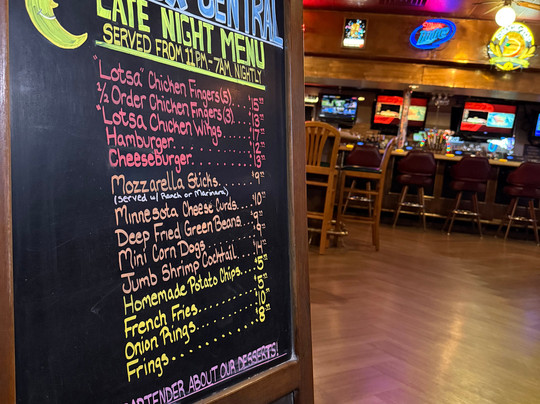 CENTRAL
LATE NIGHT MENU
SERVED FROM 11PM - 7AM NIGHTLY
"Lotsa" Chicken Fingers (5)....$15
½ Order Chicken Fingers (3)....$10
"Lotsa Chicken Wings....$17
Hamburger....$12
CheeseBurger....$13
Mozzarella Sticks....$9
(served w/ Ranch or Marinara)
Minnesota Cheese Curds....$10
Deep Fried Green Beans....$9
Mini Corn Dogs....$9
Jumb Shrimp Cocktail....$14
Homemade Potato Chips....$5
French Fries....$5
Onion Rings....$10
Frings....$8
BARTENDER ABOUT OUR DESSERTS!